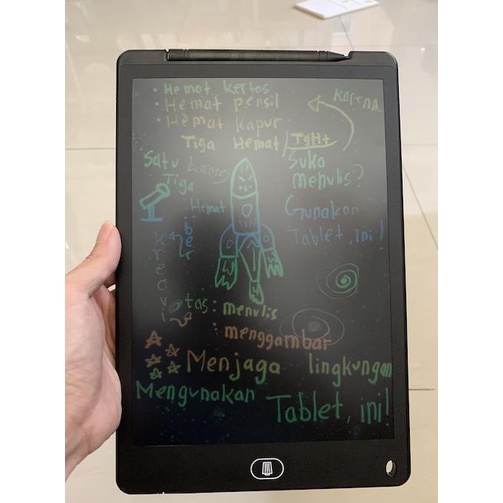 • Hemat kertas
• Hemat pensil
• Hemat kapur
Karena
Tiga Hemat / TgHt
Satu
Tiga
Hemat
Suka
menulis?
Gunakan
Tablet, ini!
ber
kreavi
tas: menulis
: menggambar
Menjaga lingkungan
Mengunakan Tablet, ini!